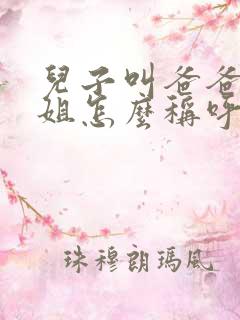 兒子叫爸爸
姐怎麼稱呼
珠穆朗瑪風